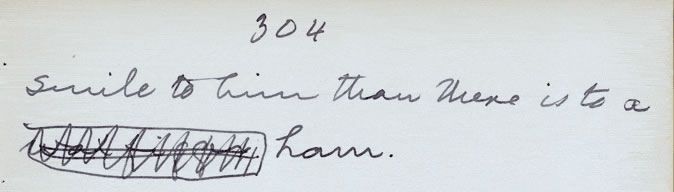 304
smile to him than there is to a
ham.